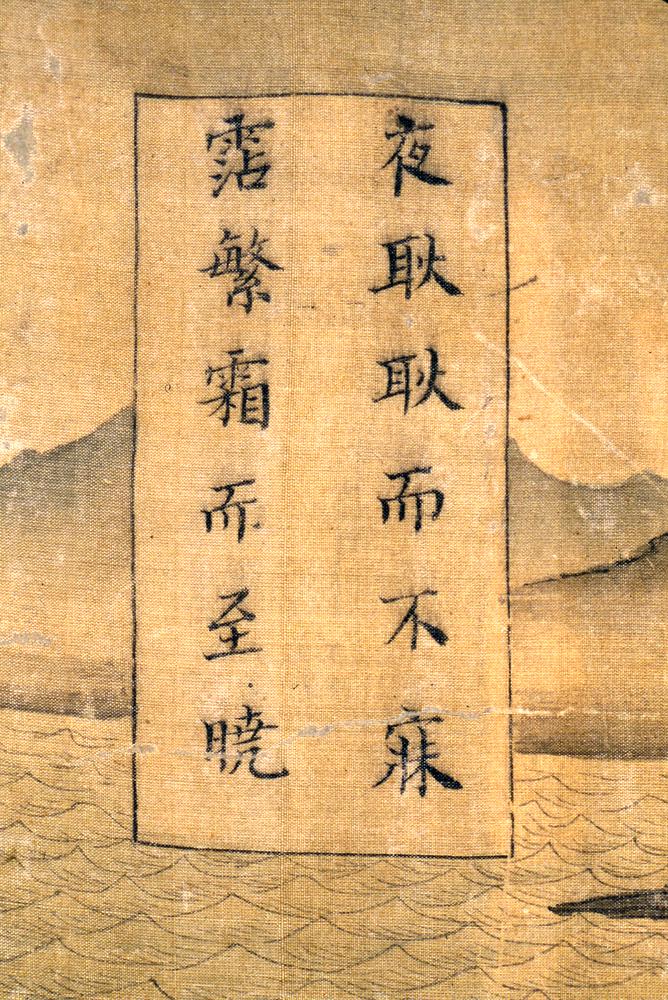 夜耿耿而不寐
霑繁霜而至曉